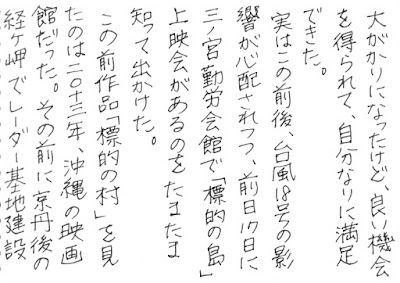 大がかりになったけど、良い機会
を得られて、自分なりに満足
できた。
実はこの前後、台風18号の影
響が心配されつつ、前日17日に
三ノ宮勤労会館で「標的の島」
上映会があるのをたまたま
知って出かけた。
この前作品「標的の村」を見
たのは二〇十三年、沖縄の映画
館だった。その前に京丹後の
経ヶ岬でレーダー基地建設